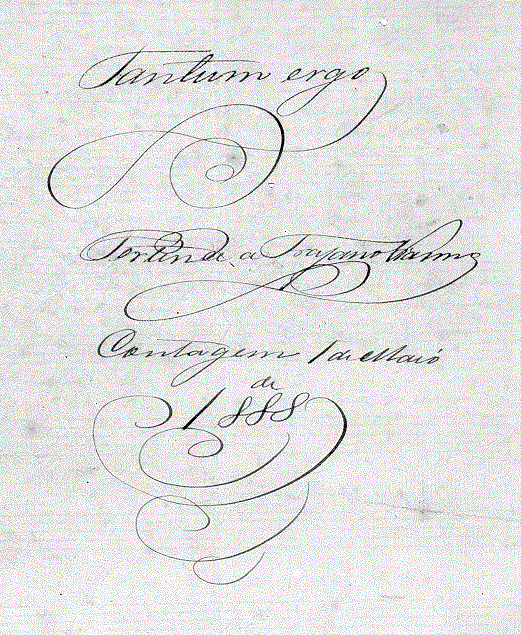 Tantum ergo
Pertence a Trajano Vianna
Contagem 1 de Maio
de
1888